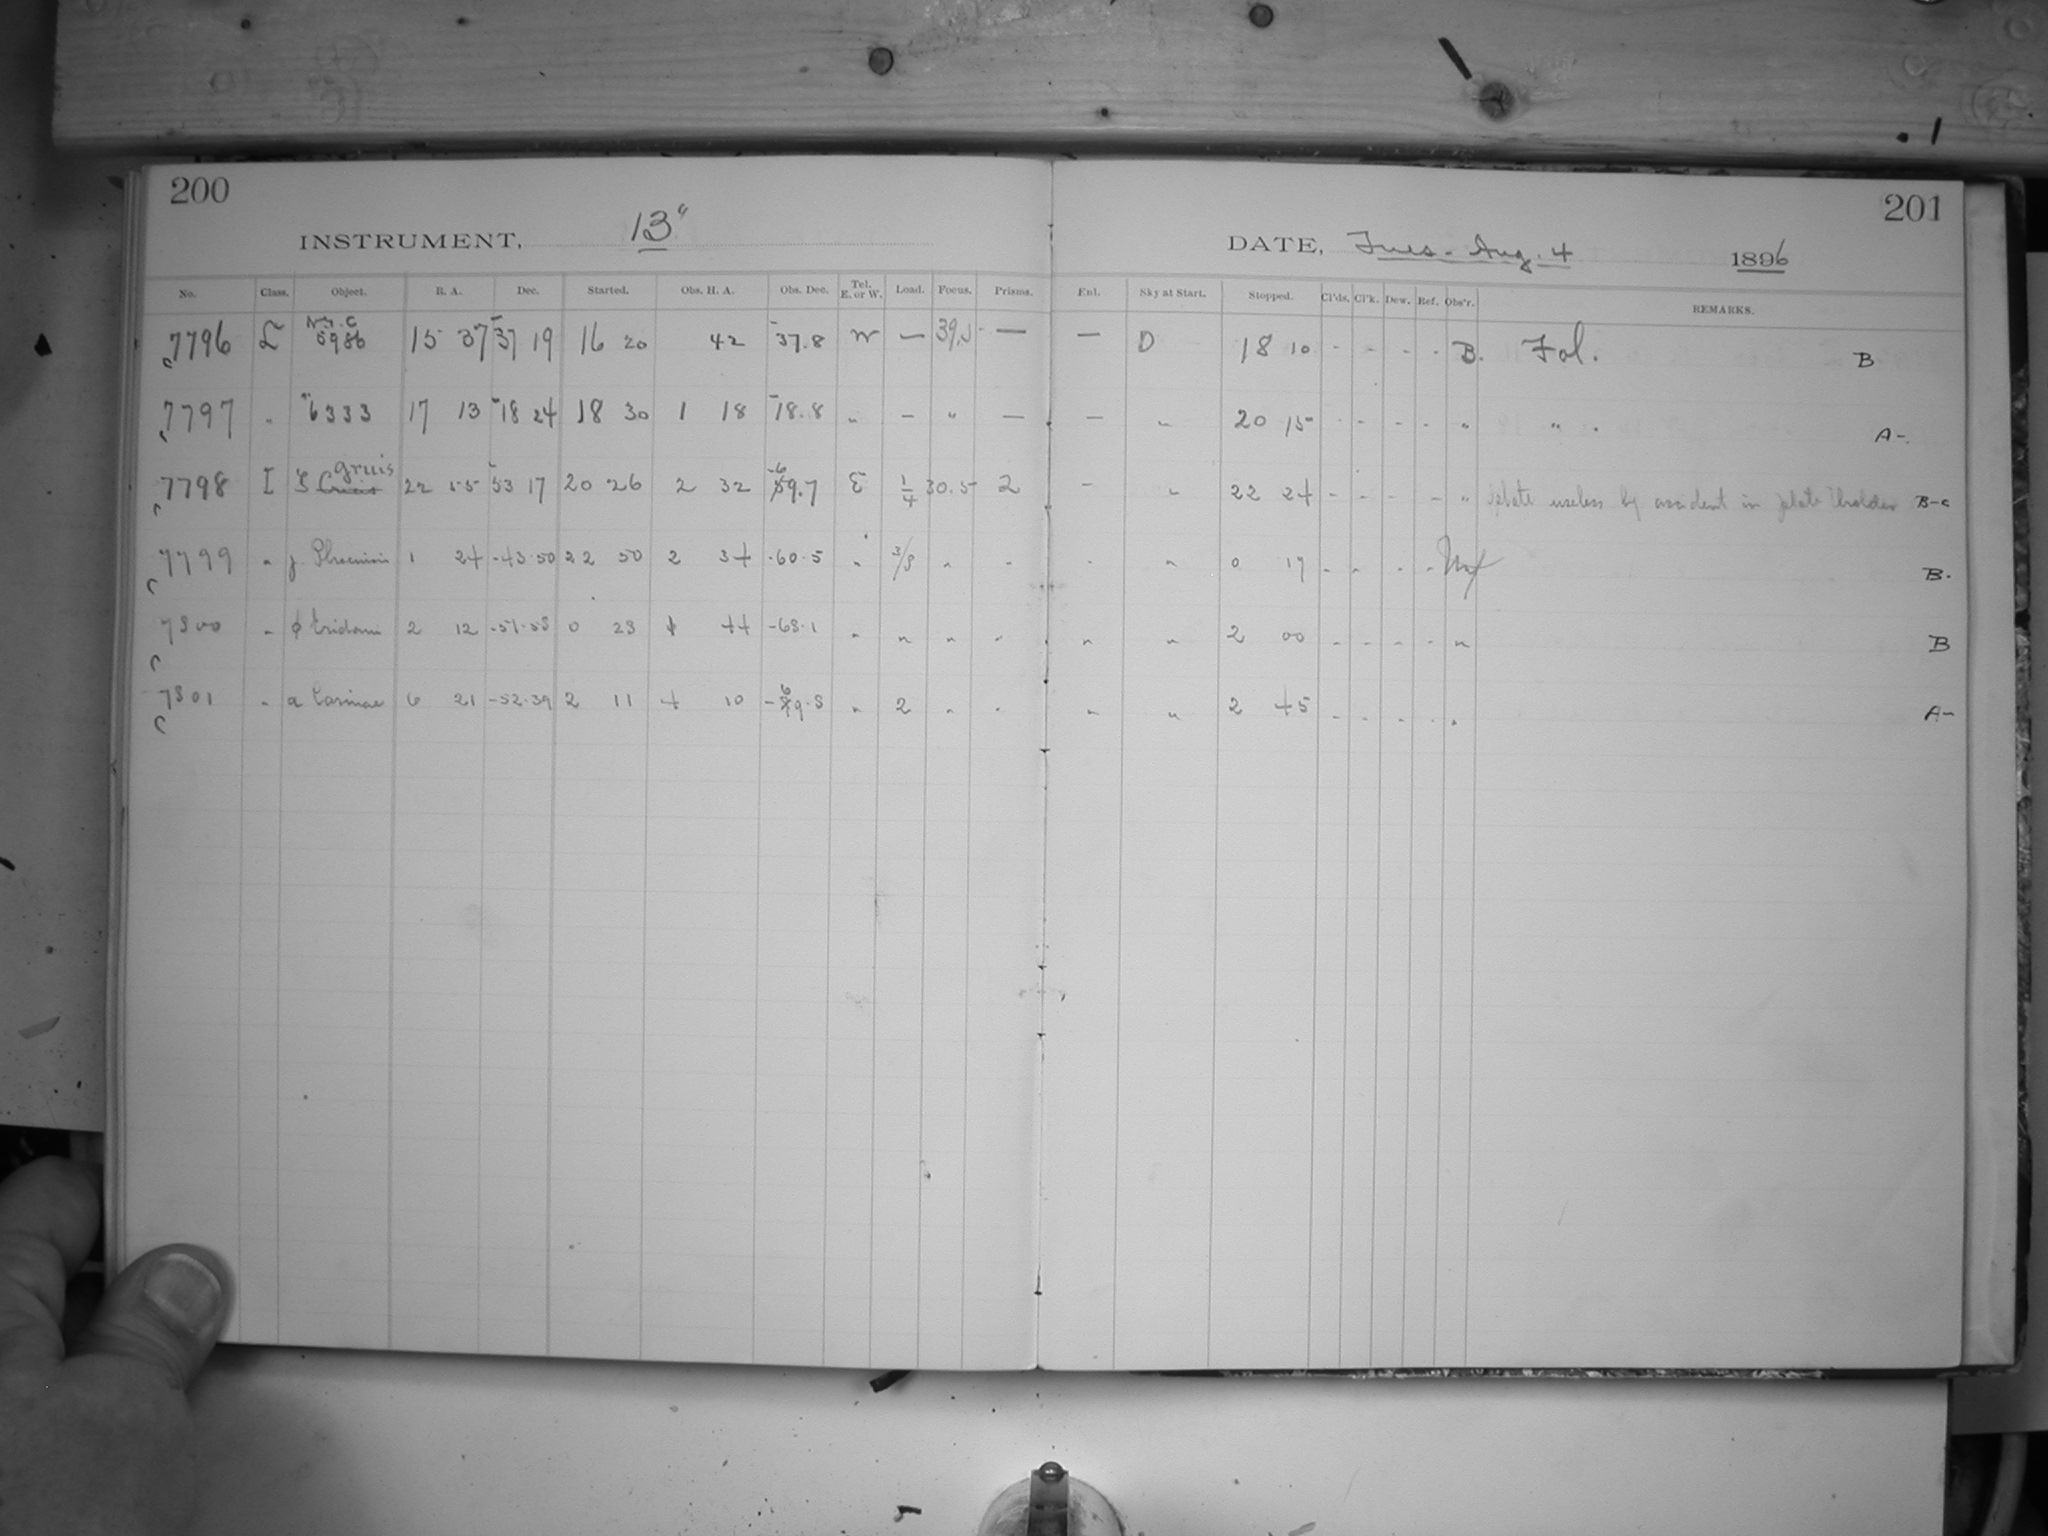 200
201
INSTRUMENT, 13"
DATE, Tues. Aug. 4 1896
No. Class. Object. R. A. Dec. Started. Obs. H. A. Obs. Dec. Tel. E. or W. Load. Focus. Prisms. Enl. Sky at Start. Stopped. Cl'ds. Cl'k. Dew. Ref. Obs'r. REMARKS.
7796 L N.G.C 5986 15 37 -37 19 16 20 42 -37.8 W — 39.5 — — D 18 10 - - - - B. Fol. B
7797 " " 6333 17 13 -18 24 18 30 1 18 -18.8 " — " — — " 20 15 - - - - " " . A-.
7798 I ξ Gruis 22 55 -53 17 20 26 2 32 -69.7 E 1/4 30.5 2 - " 22 24 - - - - " plate useless by accident in plate holder B-C
7799 " γ Phoenicis 1 24 -43.50 22 50 2 34 -60.5 " 3/8 " " " " 0 17 - - - - B.
7800 " φ Eridani 2 12 -51.58 0 23 1 44 -68.1 " " " " " " 2 00 - - - - " B
7801 " α Carinae 6 21 -52.39 2 11 4 10 -69.8 " 2 " " " " 2 45 - - - - " A-